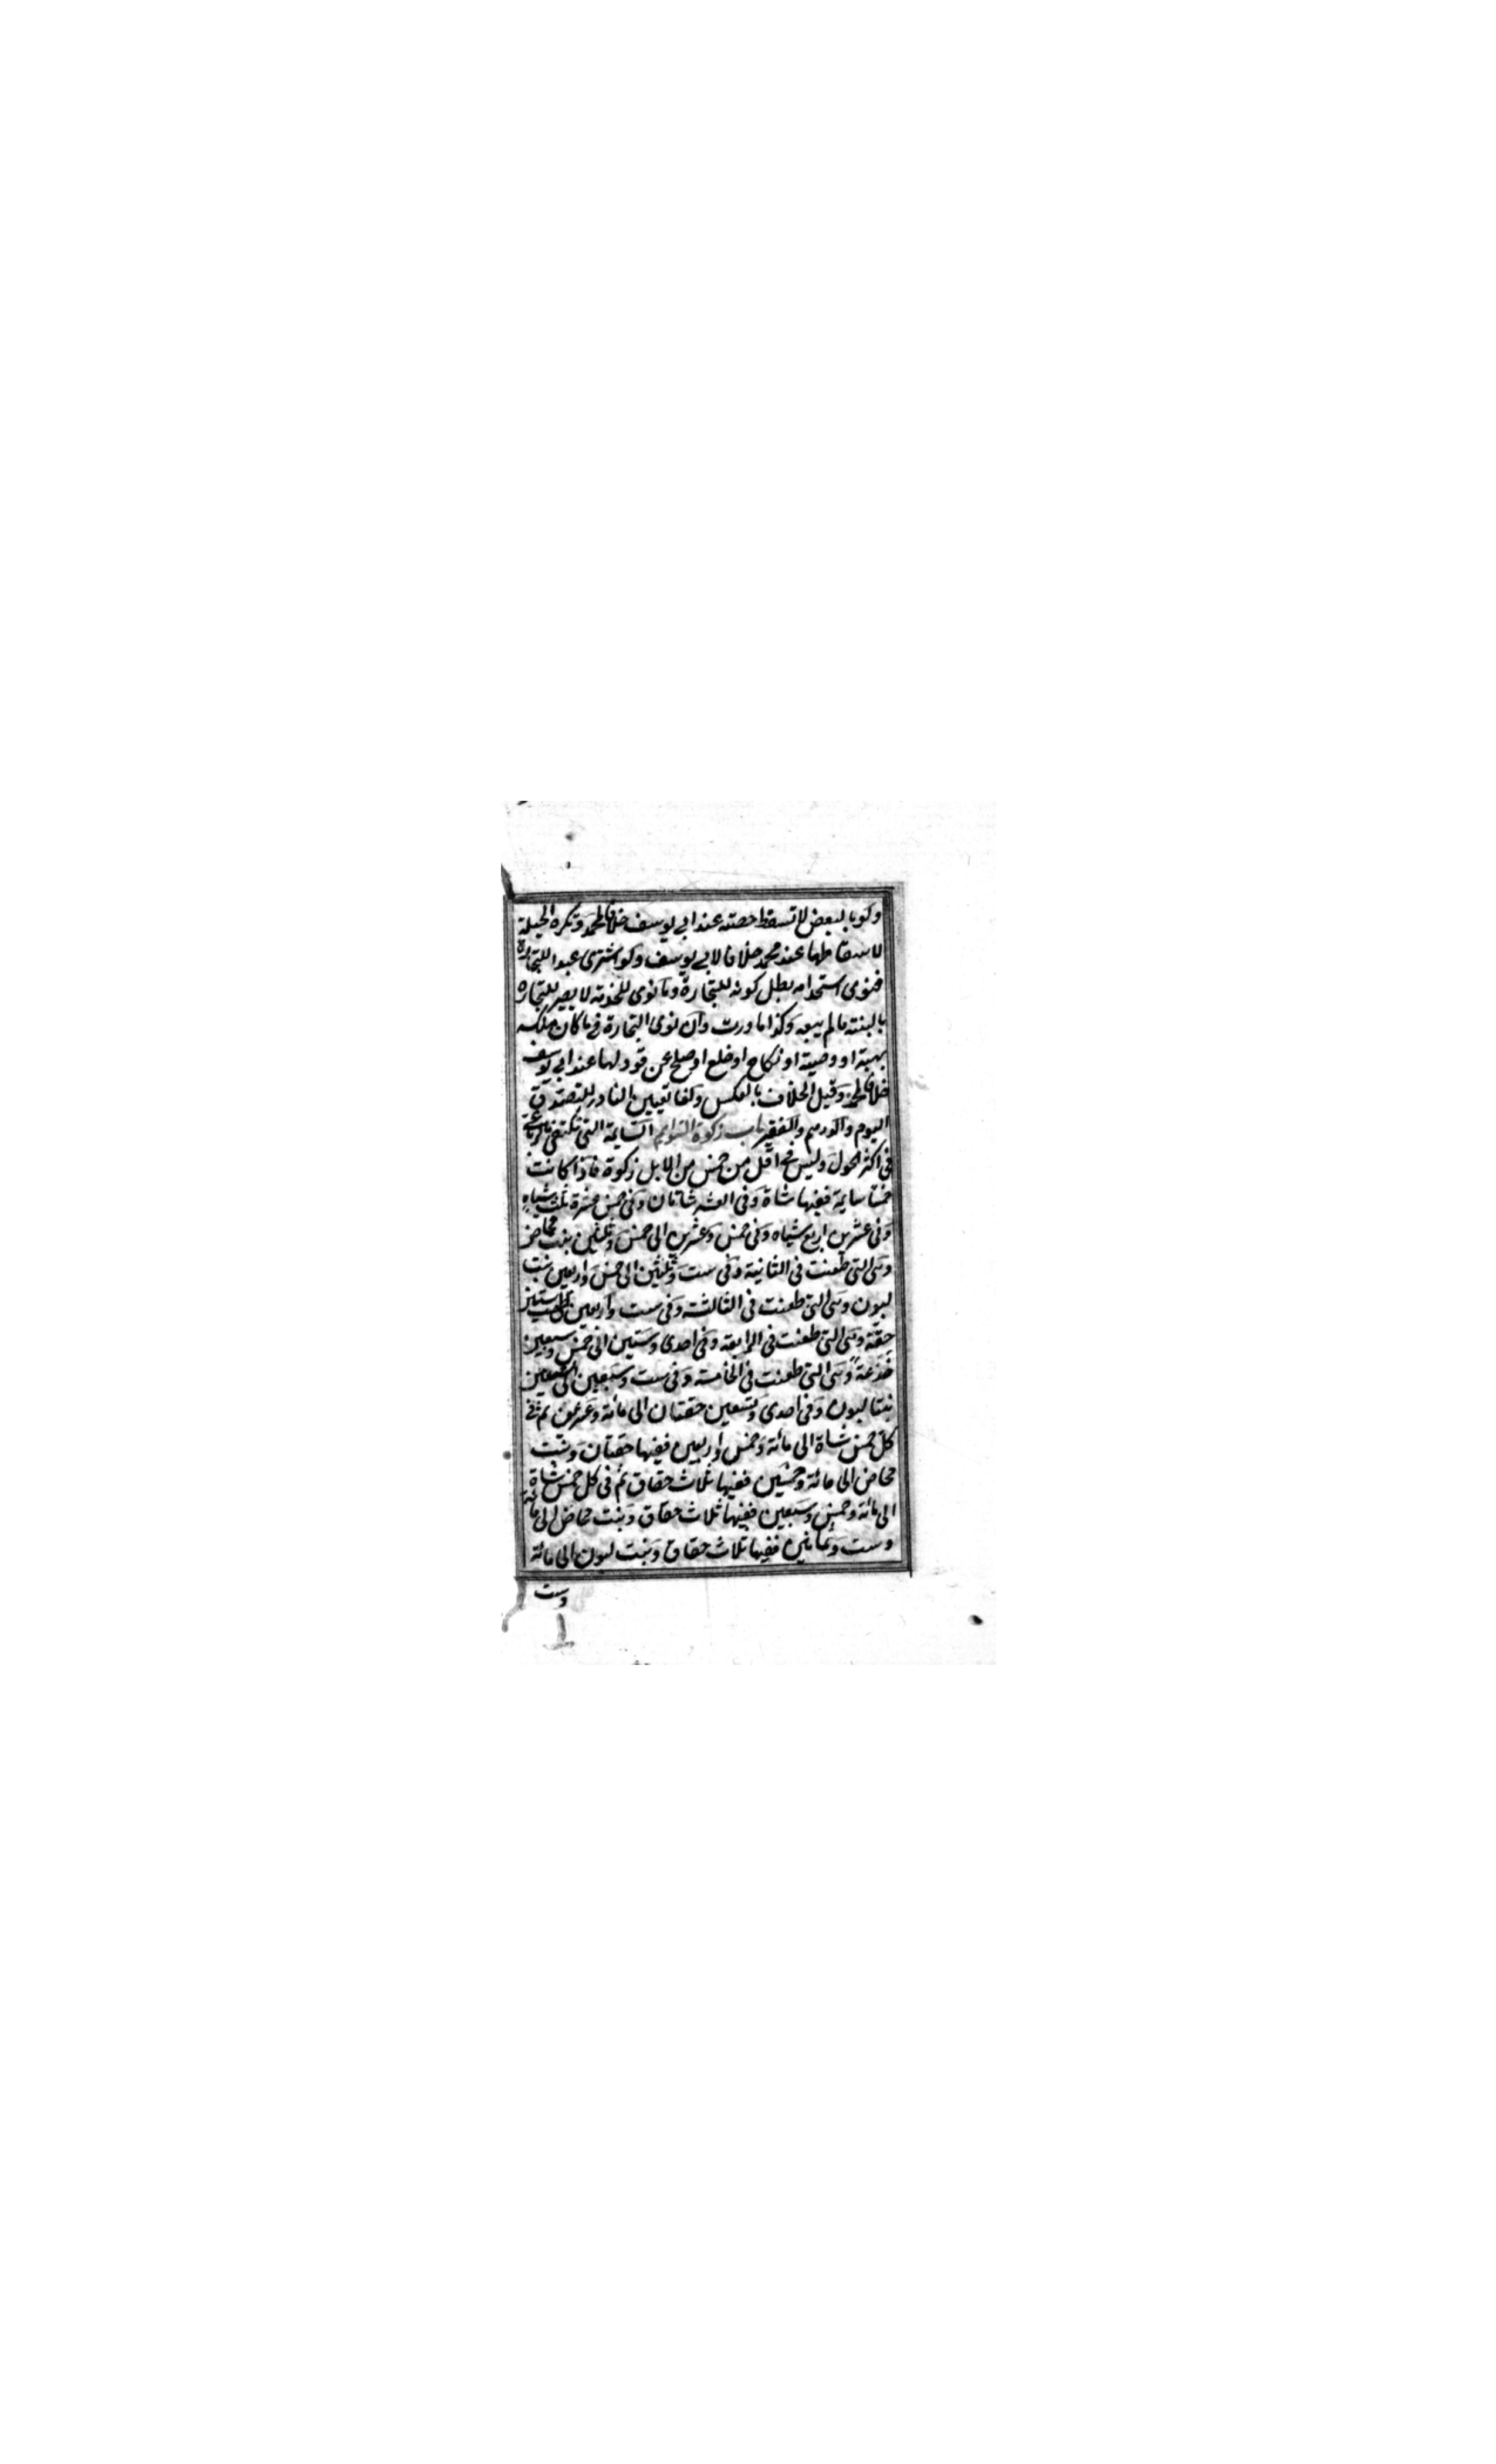 ولو بالبعض لا تسقط حصته عند ابي يوسف خلافا لمحمد وتكره الحيلة
لاسقاطها عند محمد خلافا لابي يوسف ولو اشترى عبدا للتجارة
فنوى استخدامه بطل كونه للتجارة وما نوى للخدمة لا يصير للتجارة
بالنية ما لم يبعه وكذا ما ورث وان نوى التجارة في ما كان ملكه
بهبة او وصية او نكاح او خلع او صلح عن قود لها عند ابي يوسف
خلافا لمحمد وقيل الخلاف بالعكس ولغا تعيين الناذر للتصدق
اليوم والدرهم والفقير باب زكوة السوايم السايمة التي تكتفي بالرعي
في اكثر الحول وليس في اقل من خمس من الابل زكوة فاذا كانت
خمسا سايمة ففيها شاة وفي العشر شاتان وفي خمس عشرة ثلث شياه
وفي عشرين اربع شياه وفي خمس وعشرين الى خمس وثلثين بنت مخاض
وهى التي طعنت في الثانية وفي ست وثلثين الى خمس واربعين بنت
لبون وهى التي طعنت في الثالثة وفي ست واربعين الى ستين
حقة وهى التي طعنت في الرابعة وفي احدى وستين الى خمس وسبعين
جذعة وهى التي طعنت في الخامسة وفي ست وسبعين الى تسعين
بنتا لبون وفي احدى وتسعين حقتان الى مائة وعشرين ثم في
كل خمس شاة الى مائة وخمس واربعين ففيها حقتان وبنت
مخاض الى مائة وخمسين ففيها ثلاث حقاق ثم في كل خمس شاة
الى مائة وخمس وسبعين ففيها ثلاث حقاق وبنت مخاض الى مائة
وست وثمانين ففيها ثلاث حقاق وبنت لبون الى مائة
وست